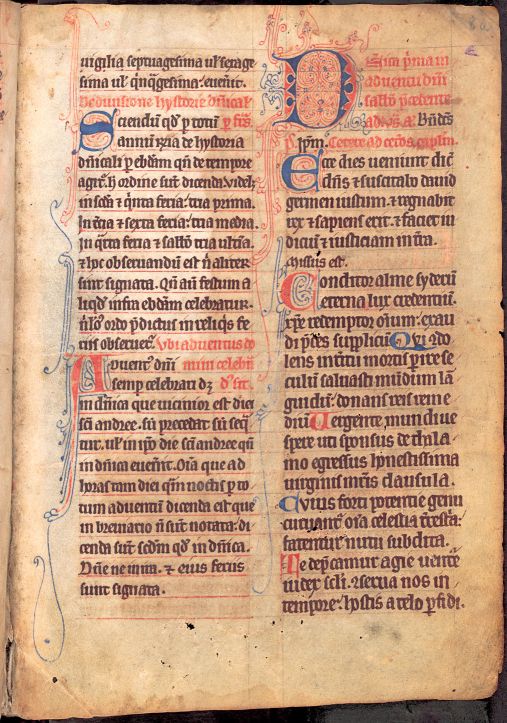 vigilia septuagesima ul' sexage
sima ul' q̄nq̄gesima. euen̄it.
De diuisione hystorie dn̄ical'
Sciendū qd̓ p totū
annū
de hystoria
dn̄icali p ebdam̄ qn̄ de tempore
agit̄. h̓ ordine sūt dicenda. videl;
in scd̓a ⁊ q̄nta feria: tria prima.
In t̓cia ⁊ sexta feria: tria media.
In q̓rta feria ⁊ sabb̓o tria ultīa.
⁊ hoc obseruandū est n̄ aliter
sint signata. Qn̄ aū festum a
liqd̓ infra ebdam̄ celebratur.
ordo p̓dictus in reliqs fe
riis obseruet̄. Vbi aduentus do
Aduent̄ dn̄i mini celebr̄
semp celebrari d;
in dn̄ica que vicinior est diei
sc̄i andree. siu precedat siu seq̄
tur. ul' in ip̄o die sc̄i andree qn̄
in dn̄ica euen̄it. Oīa que ad
horas tam diei q̄m noctis p to
tum aduentū dicenda est que
in breuiario n̄ sūt notata: di
cenda sūt scdm̄ qd̓ in dn̄ica.
ne una. ⁊ eius feriis
sunt signata.
Dn̄ica p̓ma in
aduentu dn̄i
sabb̓o p̓cedente
ad
Ecce dies ueniunt dic̄
dn̄s ⁊ suscitabo dauid
germen iustum. ⁊ regnabit
rex ⁊ sapiens erit. ⁊ faciet iu
diciū ⁊ iusticiam in t̓ra.
Missus est.
Conditor alme syderū
eterna lux credentiū.
xp̄e redemptor om̄ium. exau
di p̄ces supplicū. Qui do
lens int̓itu mortis p̓ire se
culū saluasti mūdum lā
guidū. donans reis reme
diū. Vergente mundi ue
spere uti sponsus de thala
mo egressus honestissima
uirginis mr̄is clausula.
Cuius forti potentie genu
curuant̄ oīa celestia t̓restia.
fatentur nutu subdita.
Te dep̄camur agie uent̄e
iudex sc̄li. ⁊serua nos in
tempore. hostis a telo p̓fidi.